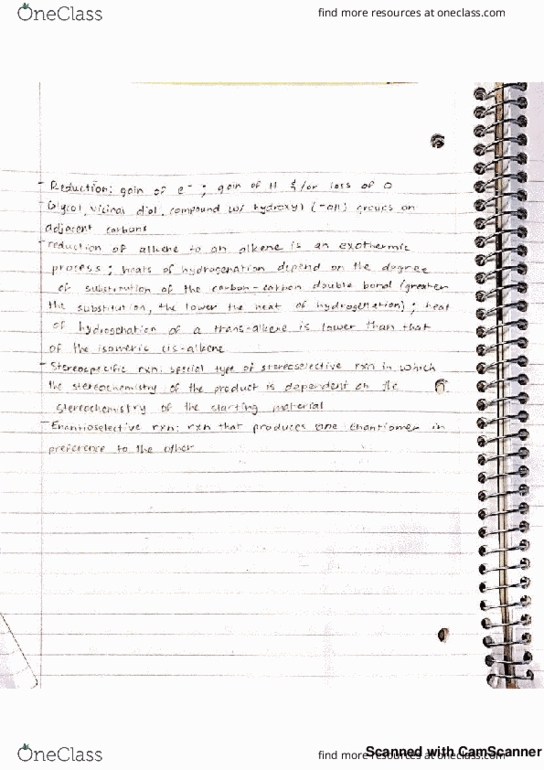 OneClass
find more resources at oneclass.com
- Reduction: gain of e⁻ ; gain of H &/or loss of O
- Glycol, vicinal diol, compound w/ hydroxyl (-OH) groups on
adjacent carbons
- reduction of alkene to an alkene is an exothermic
process ; heats of hydrogenation depend on the degree
of substitution of the carbon-carbon double bond (greater
the substitution, the lower the heat of hydrogenation) ; heat
of hydrogenation of a trans-alkene is lower than that
of the isomeric cis-alkene
- Stereospecific rxn: special type of stereoselective rxn in which
the stereochemistry of the product is dependent on the
stereochemistry of the starting material
- Enantioselective rxn: rxn that produces one enantiomer in
preference to the other
OneClass
find more resources at oneclass.com
Scanned with CamScanner